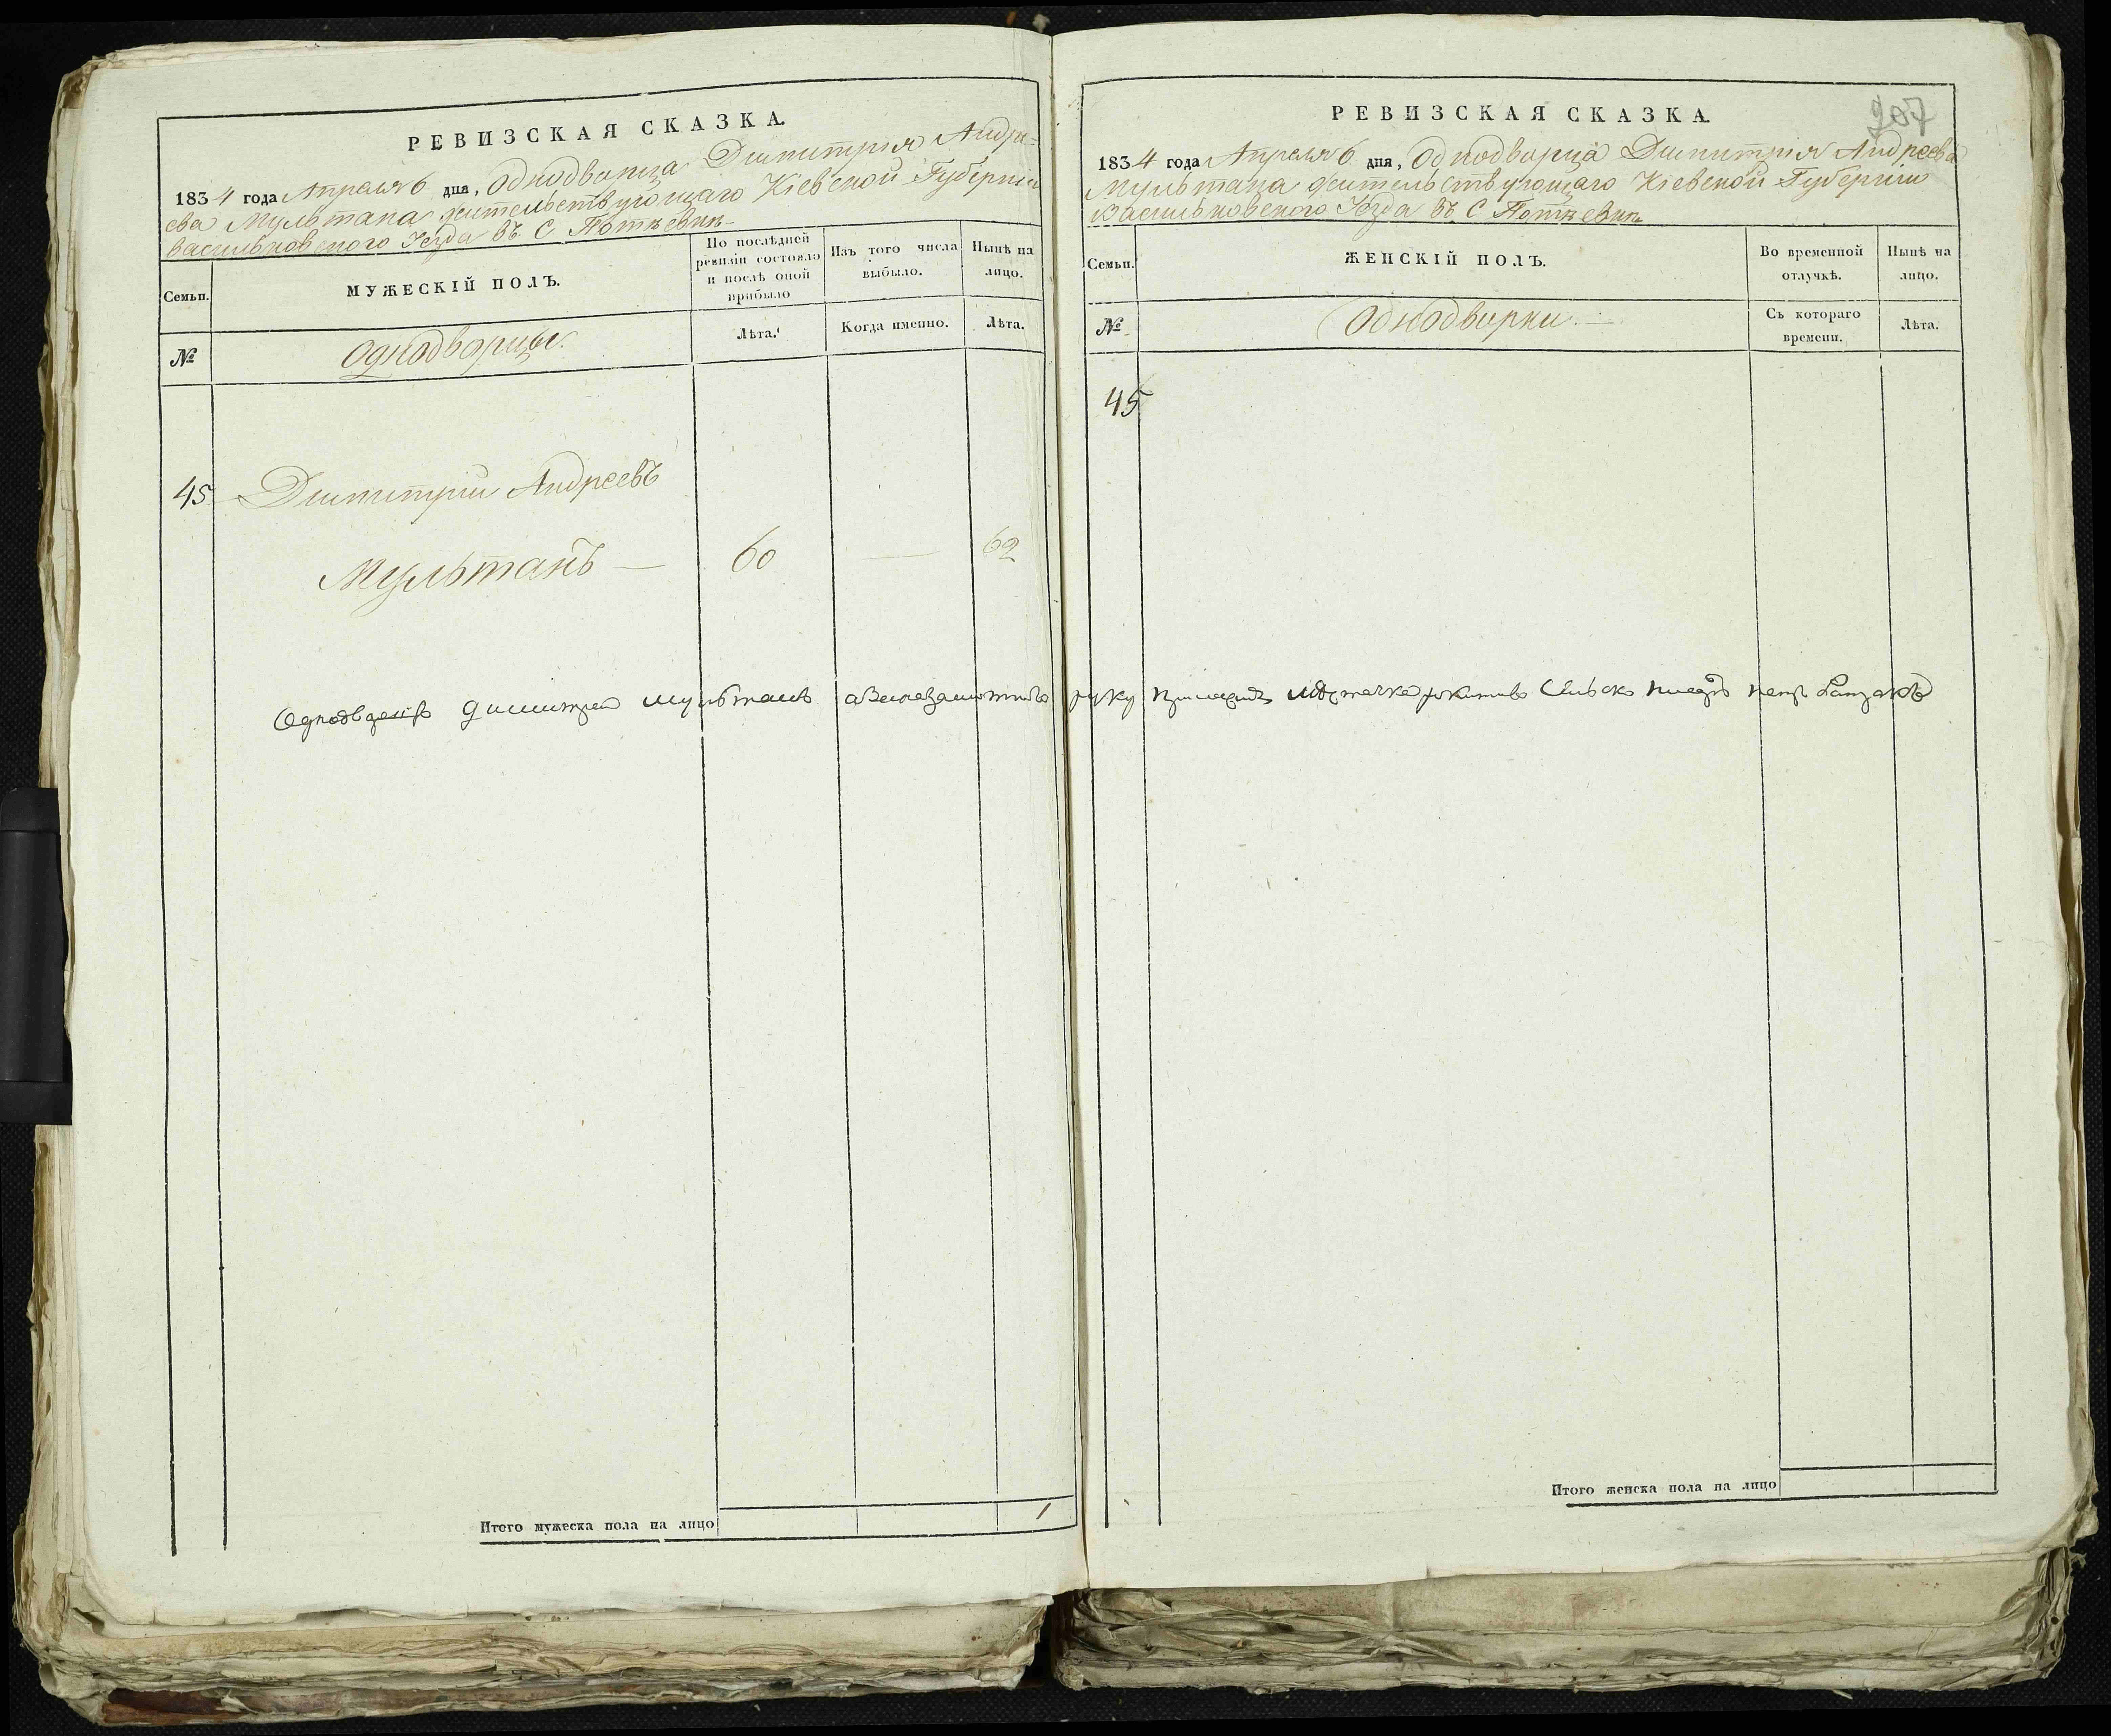 РЕВИЗСКАЯ СКАЗКА.
1834 года Апреля 6 дня, Однодворца Димитрія Андре=
ева Мультана жительствующаго Кіевской Губерніи
Васильковского Уезда въ С.
Семьи.
МУЖЕСКІЙ ПОЛЪ.
По послѣдней ревизіи состояло и послѣ оной прибыло
Изъ того числа выбыло.
Нынѣ на лицо.
№
Однодворцы.
Лѣта.
Когда именно.
Лѣта.
45 Димитрій Андреевъ
Мультанъ — 60 — 62
Димитрей Мультанъ руку
Итого мужеска пола на лицо 1
207
РЕВИЗСКАЯ СКАЗКА.
1834 года Апреля 6 дня, Однодворца Димитрія Андреева
Мультана жительствующаго Кіевской Губерніи
Васильковского Уезда въ С.
Семьи.
ЖЕНСКІЙ ПОЛЪ.
Во временной отлучкѣ.
Нынѣ на лицо.
№
Однодворки. —
Съ котораго времени.
Лѣта.
45
Итого женска пола на лицо